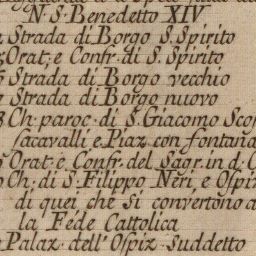 N. S. Benedetto XIV
Strada di Borgo S. Spirito
Orat. e Confr. di S. Spirito
Strada di Borgo vecchio
Strada di Borgo nuovo
Ch. paroc. di S. Giacomo
sacavalli e Piaz. con fontana
Orat. e Confr. del Sagr. in d.
Ch. di S. Filippo Neri, e Ospiz
di quei che si convertono a
la Fede Cattolica
Palaz. dell' Ospiz. suddetto